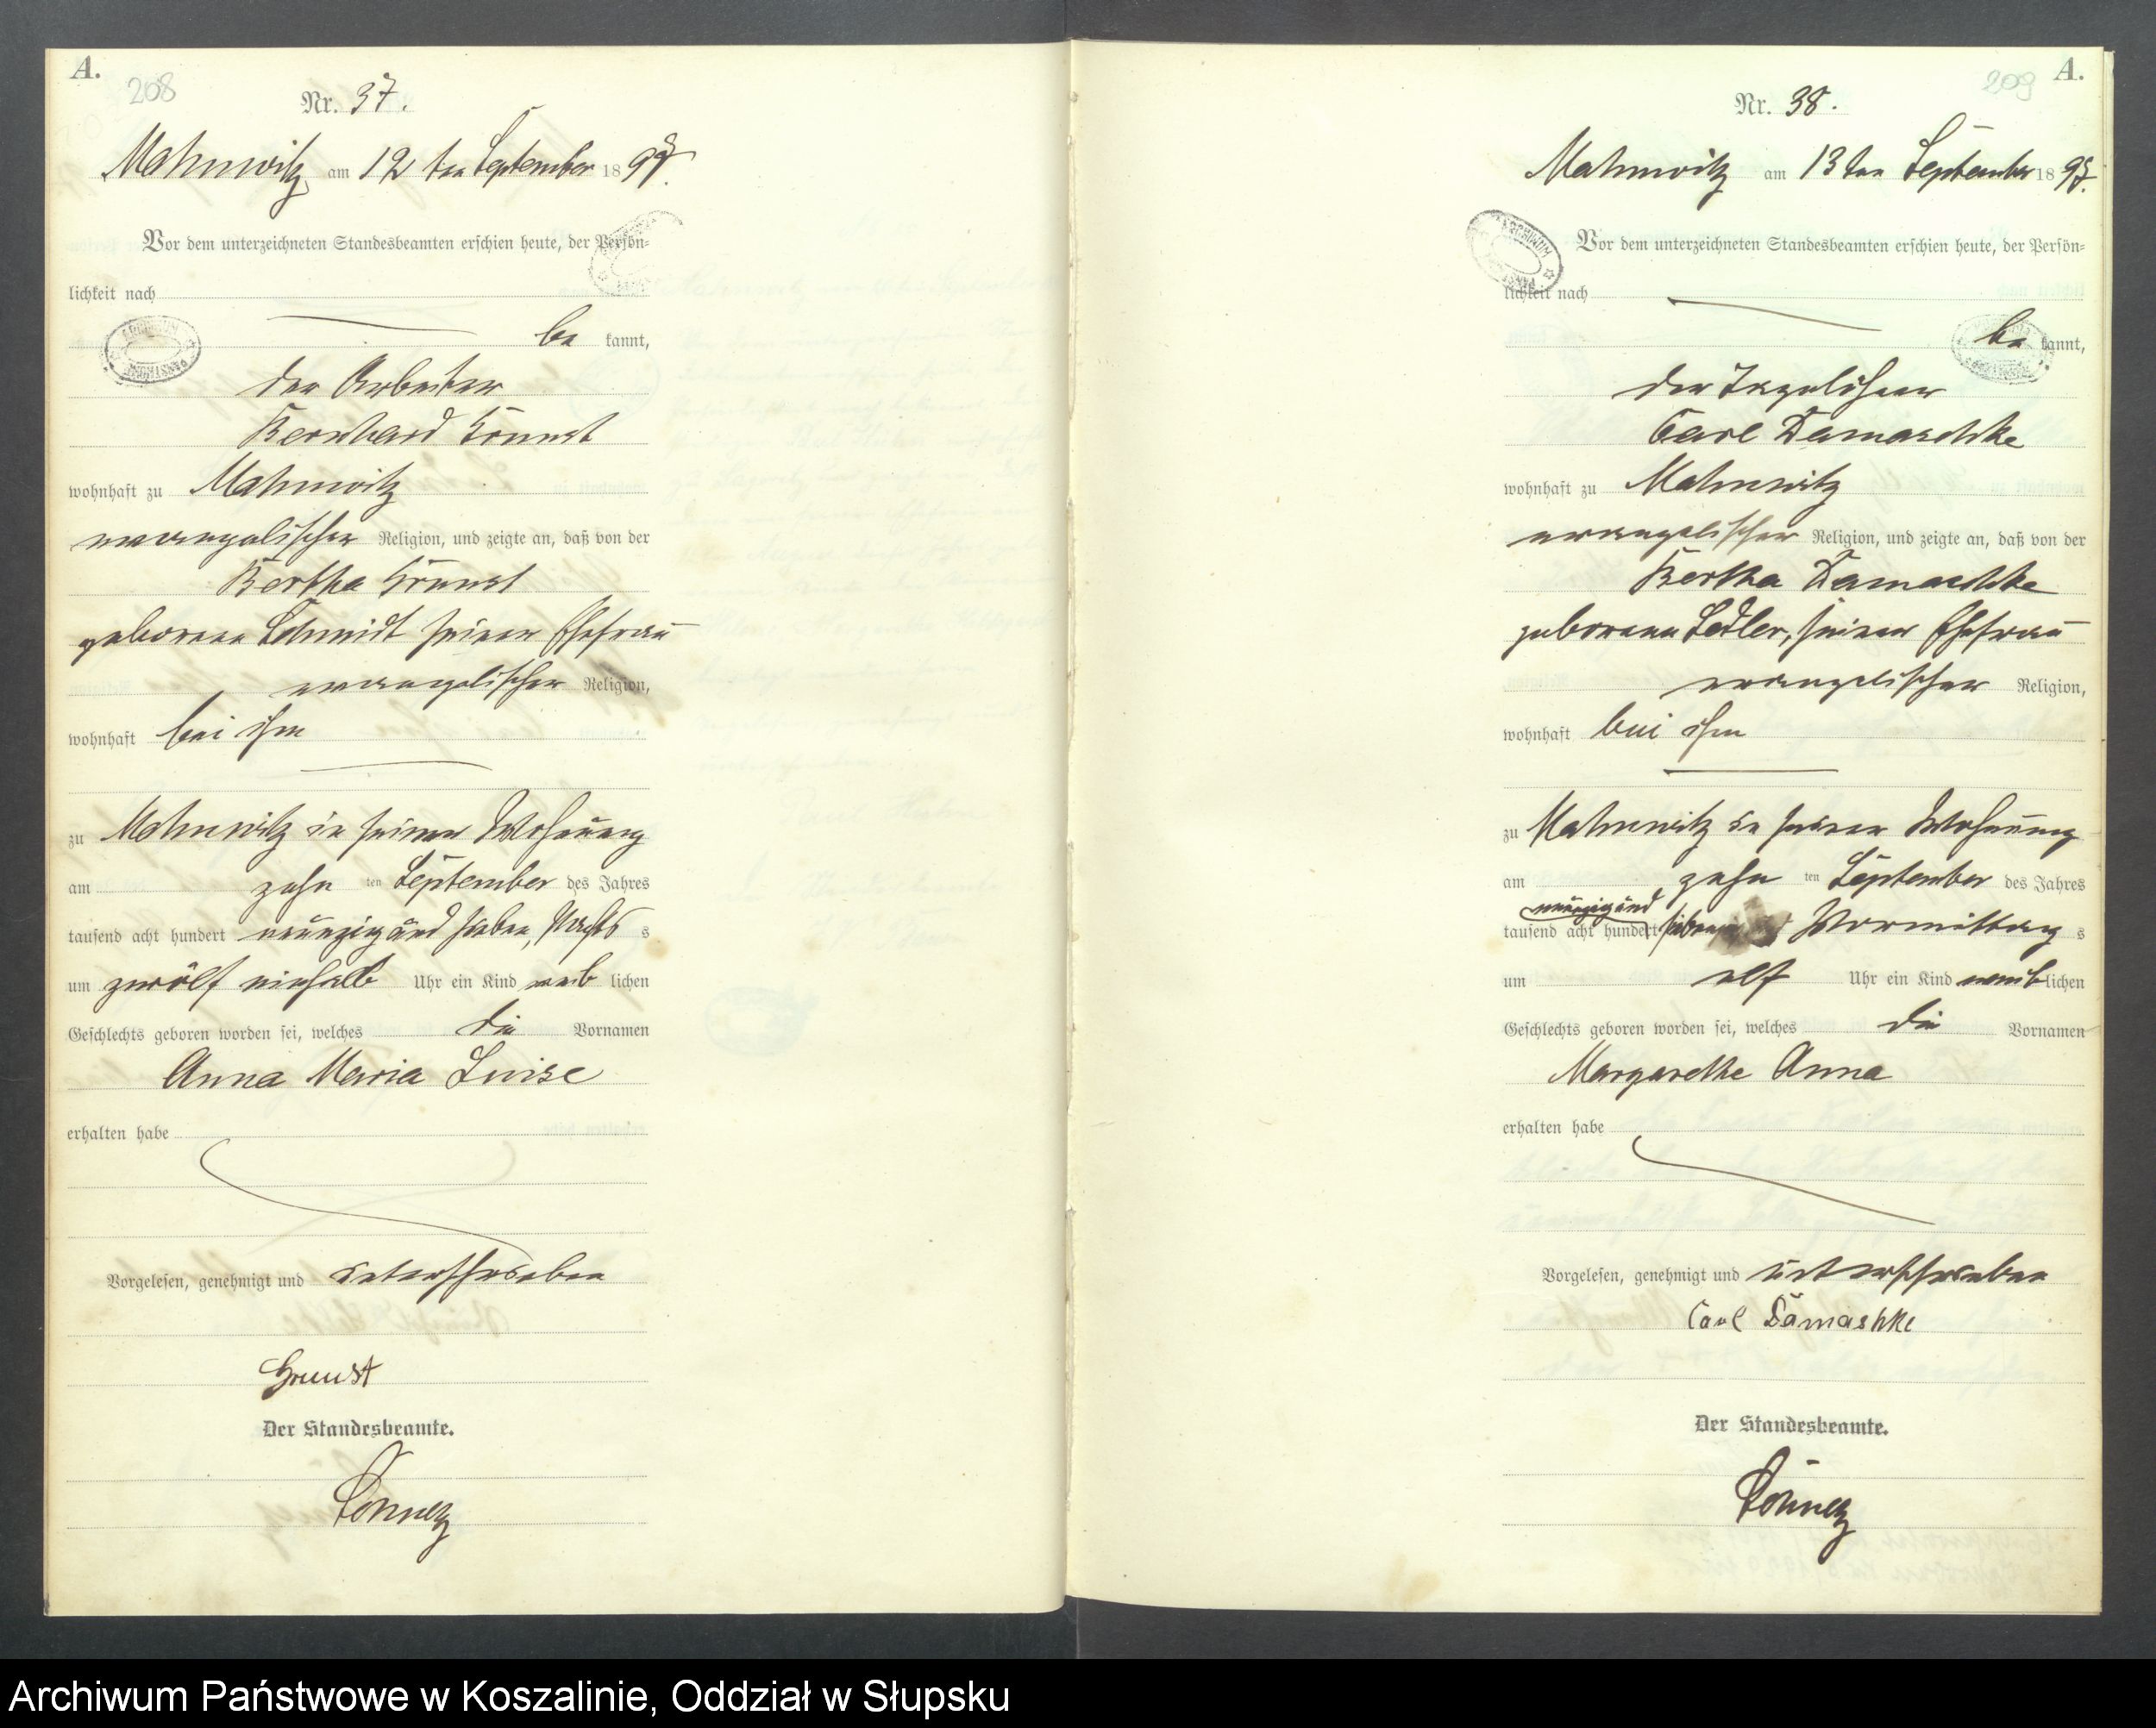 A.
208
Nr. 37.
Mahnwitz am 12 ten September 1897.
Vor dem unterzeichneten Standesbeamten erschien heute, der Persön-
lichkeit nach
be kannt,
der Arbeiter
Bernhard Grunst
wohnhaft zu Mahnwitz
evangelischer Religion, und zeigte an, daß von der
Bertha Grunst
geborene Schmidt seiner Ehefrau
evangelischer Religion,
wohnhaft bei ihm
zu Mahnwitz in seiner Wohnung
am zehn ten September des Jahres
tausend acht hundert neunzig und sieben, Nachts s
um zwölf einhalb Uhr ein Kind weib lichen
Geschlechts geboren worden sei, welches die Vornamen
Anna Maria Luise
erhalten habe
Vorgelesen, genehmigt und unterschrieben
Grunst
Der Standesbeamte.
A.
209
Nr. 38.
Mahnwitz am 13 ten September 1897.
Vor dem unterzeichneten Standesbeamten erschien heute, der Persön-
lichkeit nach
be kannt,
der
Carl Damaschke
wohnhaft zu Mahnwitz
evangelischer Religion, und zeigte an, daß von der
Bertha Damaschke
geborene Sedler, seiner Ehefrau
evangelischer Religion,
wohnhaft bei ihm
zu Mahnwitz in seiner Wohnung
am zehn ten September des Jahres
neunzig und
tausend acht hundert sieben Vormittag s
um elf Uhr ein Kind weib lichen
Geschlechts geboren worden sei, welches die Vornamen
Margarethe Anna
erhalten habe
Vorgelesen, genehmigt und unterschrieben
Carl Damashke
Der Standesbeamte.
Archiwum Państwowe w Koszalinie, Oddział w Słupsku